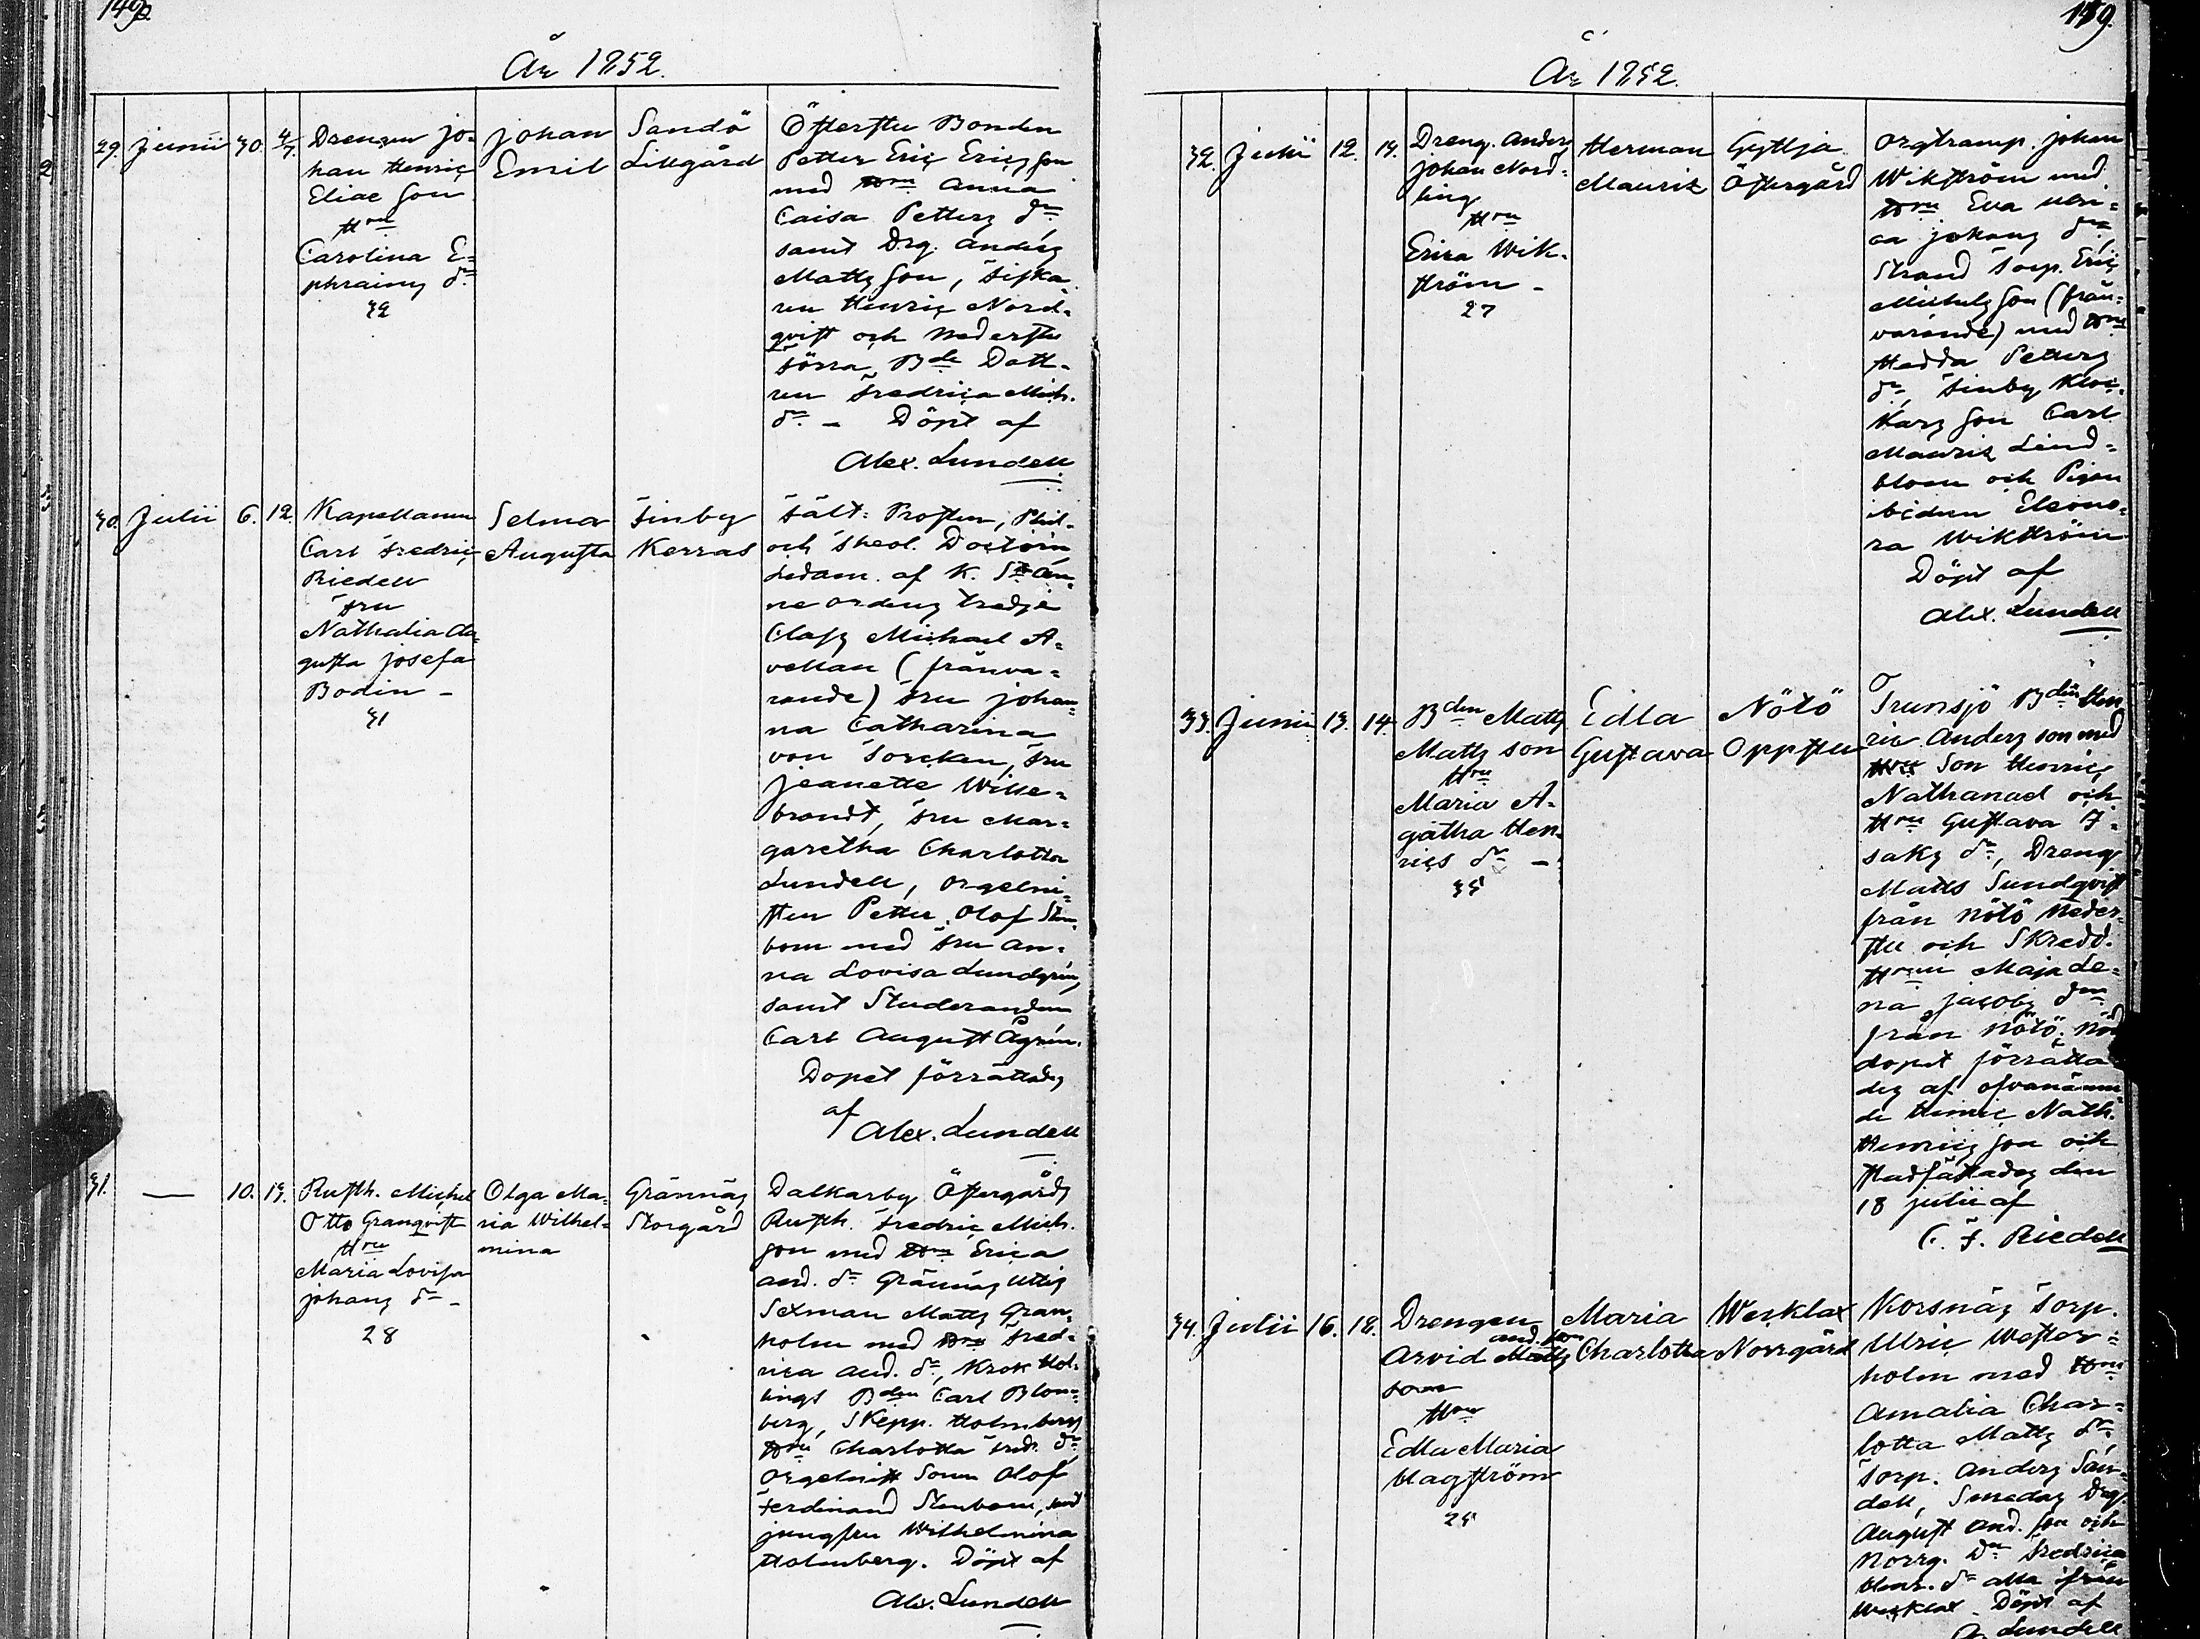 År 1852.
29. Junii 30. 4/7.
Drengen Jo=
han Henric
Eliae Son
Hru
Carolina E=
phraims dr
32
Johan
Emil
Sandö
Lillgård
Öfterstu Bonden
Petter Eric Erics Son
med Hru Anna
Caisa Petters dr
samt Drg. Anders
Matts Son, Fiska=
ren Henric Nord=
qvist och Nederstu
Södra Bde Dott=
ren Fredrica Mich.
dr. - Döpt af
Alex. Lundell
30. Julii 6. 12.
Kapellanen
Carl Fredric
Riedell
Fru
Nathalia Au=
gusta Josefa
Bodin -
31
Selma
Augusta
Finby
Kerras
Fält= Prosten, Phil=
och Theol. Doctorn
Ledam. af K. St An=
ne Ordens tredje
Class Michael A=
vellan (frånva=
rande) Fru Johan=
na Catharina
von Torcken, Fru
Jeanette Wille=
brandt, Fru Mar=
garetha Charlotta
Lundell, Orgelni=
sten Petter Olof Sten=
bom med Fru An=
na Lovisa Lundgrén,
samt Studeranden
Carl August Ågrén.
Dopet förrättades
af
Alex. Lundell
31. — 10. 13.
Rusth. Michel
Otto Granqvist
Hru
Maria Lovisa
Johans dr -
28
Olga Ma=
ria Wilhel=
mina
Grännäs
Storgård
Dalkarby Östergårds
Rusth. Fredric Mich.
Son med Hru Erica
And. dr Grännäs Uttis
Sexman Matts Gran=
holm med Hru Fred=
rica And. dr, Krok Hol=
lings Bden Carl Blom=
berg, Skepp. Holmbergs
Hru Charlotta Fred. dr
Orgelnist Sonen Olof
Ferdinand Stenbom, samt
Jungfru Wilhelmina
Holmberg. Döpt af
Alex. Lundell
149.
År 1852.
32. Julii 12. 19.
Dreng. Anders
Johan Nord=
ling
Hru
Erica Wik=
ström -
27
Herman
Mauritz
Gyttja
Östergård
Orgtramp. Johan
Wikström med
Hru Eva Ulri=
ca Johans dr
Strand Torp. Eric
Michels Son (från=
varande) med Hru
Hedda Petters
dr, Finby Kloc=
kars Son Carl
Mauritz Lind=
blom och Pigan
ibidem Eleono=
ra Wikström
Döpt af
Alex. Lundell
33. Junii 13. 14.
Bden Matts
Matts son
Hru
Maria A=
gatha Hen=
rics dr -
35
Edla
Gustava
Nötö
Oppstu
Trunsjö Bden Hen
ric Anders son med
Hru Son Henric
Nathanael och
Hru Gustava I=
saks dr, Dreng
Matts Sundqvist
från Nötö Neder=
stu och Skredd.
Hrun Maja Le=
na Jacobs drn
från Nötö. Nöd
dopet förrätta
des af ofvanämn=
de Henric Nath.
Henrics Son och
stadfästades den
18 Julii af
C. F. Riedell
34. Julii 16. 18.
Drengen
And. son
Arvid Matts
son
Hru
Edla Maria
Hagström
25
Maria
Charlotta
Werklax
Norrgård
Korsnäs Torp.
Ulric Wester=
holm med Hru
Amalia Char=
lotta Matts dr,
Torp. Anders San=
dell, Smedas Drg.
August And. Son och
Norrg. Dn Fredrica
Henr. dr alla från
Werklax. Döpt af
Lundell